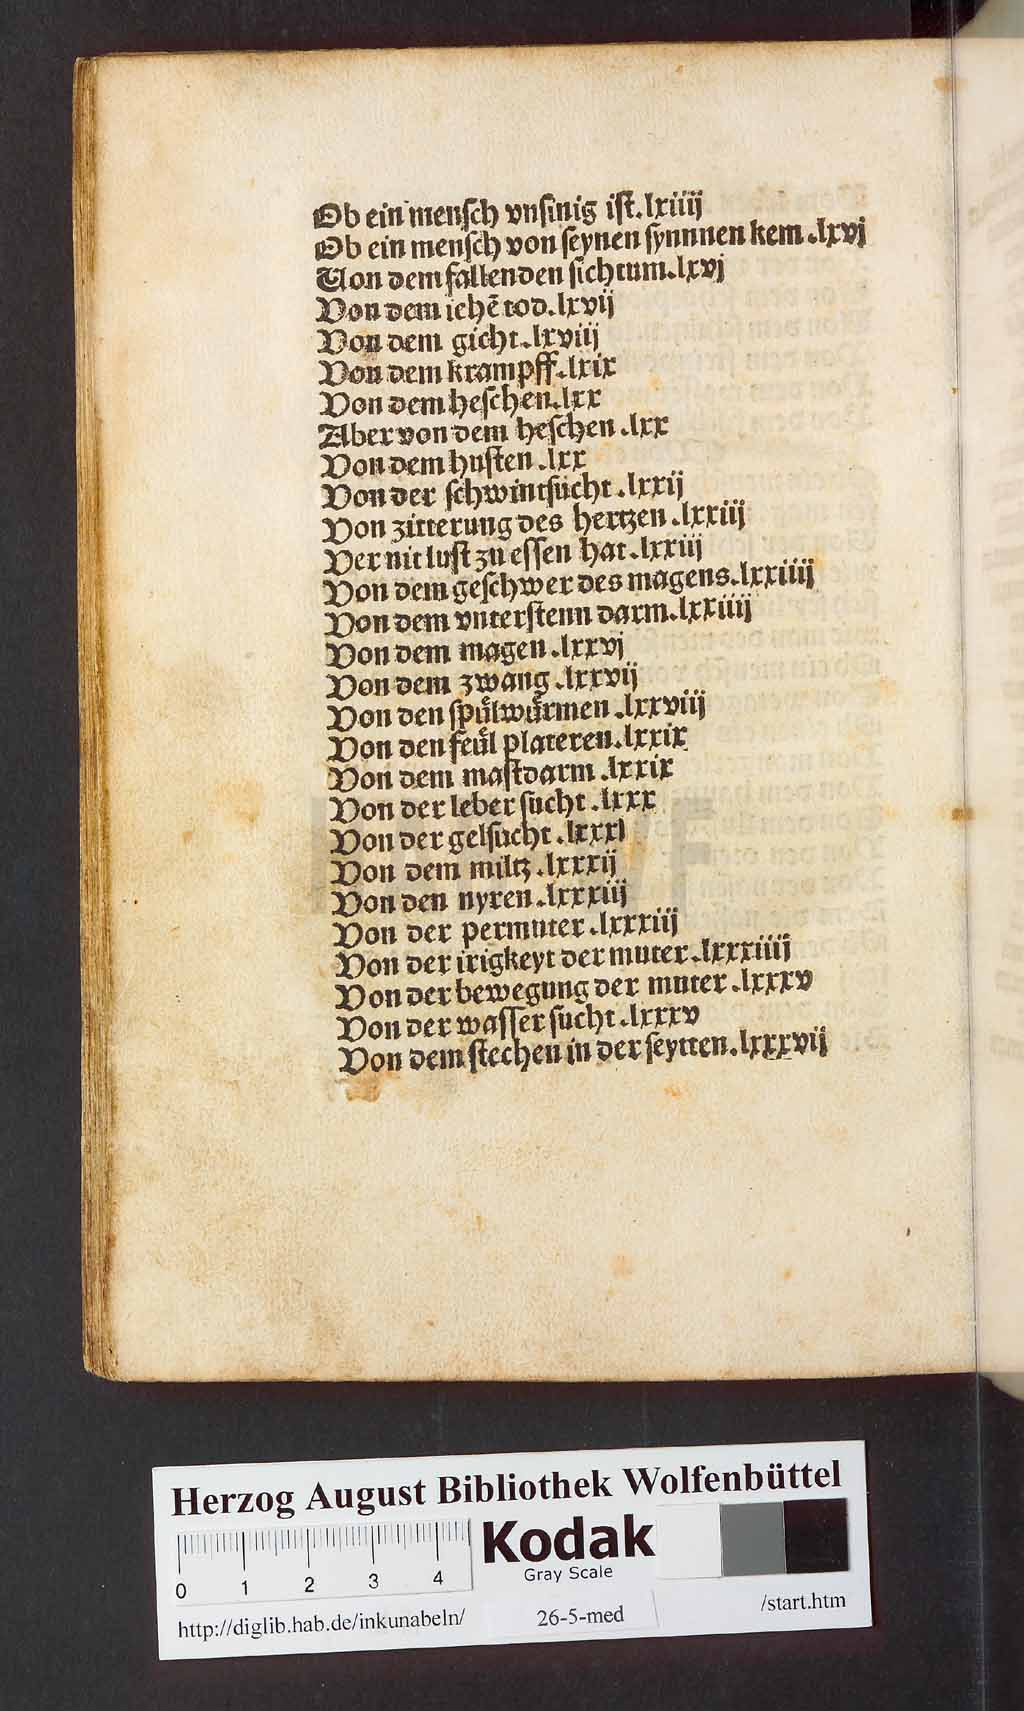 Ob ein mensch vnsinig ist.lxiiij
Ob ein mensch von seynen synnnen kem .lxvj
Von dem fallenden sichtum.lxvj
Von dem ichẽ tod.lxvij
Von dem gicht.lxviij
Von dem krampff.lxix
Von dem heschen.lxx
Aber von dem heschen .lxx
Von dem husten .lxx
Von der schwintsucht .lxxij
Von zitterung des hertzen .lxxiij
Der nit lust zu essen hat .lxxiij
Von dem geschwer des magens.lxxiiij
Von dem vnterstenn darm.lxxiiij
Von dem magen .lxxvj
Von dem zwang .lxxvij
Von den spuͤlwuͤrmen .lxxviij
Von den feuͤl plateren.lxxix
Von dem mastdarm .lxxix
Von der leber sucht .lxxx
Von der gelsucht .lxxxl
Von dem miltz .lxxxij
Von den nyren .lxxxiij
Von der permuter .lxxxiij
Von der irigkeyt der muter .lxxxiiij
Von der bewegung der muter .lxxxv
Von der wasser sucht .lxxxv
Von dem stechen in der seytten.lxxxvij
Herzog August Bibliothek Wolfenbüttel
0 1 2 3 4
Kodak
Gray Scale
http://diglib.hab.de/inkunabeln/ 26-5-med /start.htm